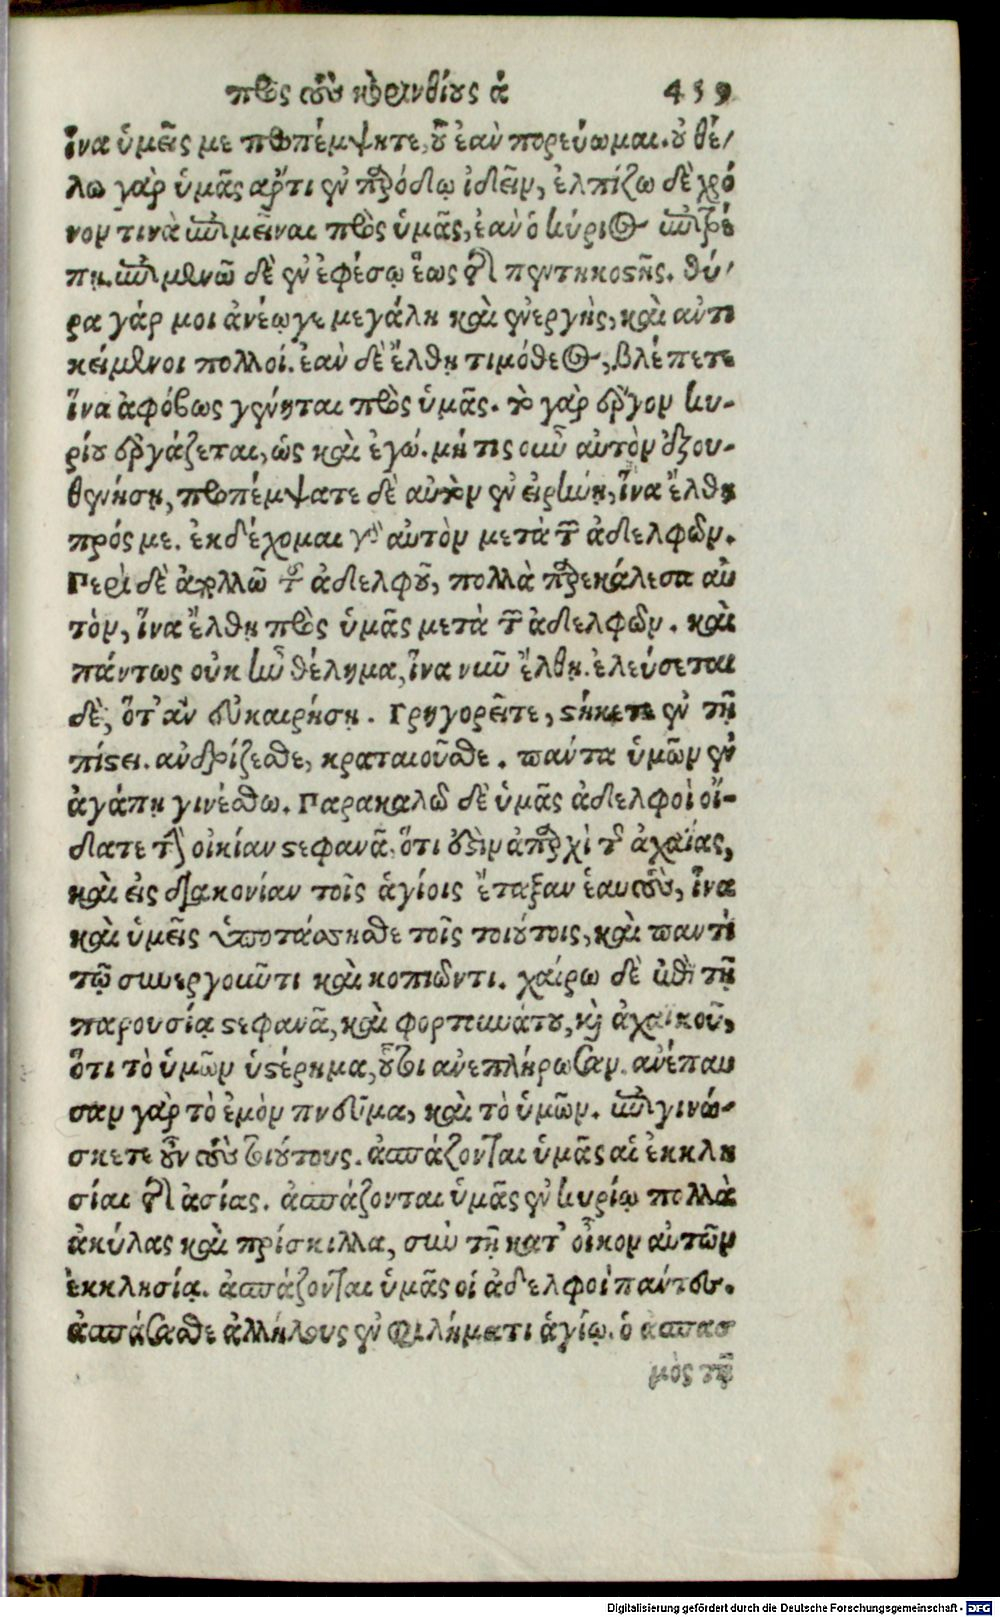 πρὸς τοὺς κορινθίους ά 459
ἵνα ὑμεῖς με προπέμψητε, οὗ ἐὰν πορεύωμαι. οὐ θέ/
λω γὰρ ὑμᾶς ἄρτι ἐν παρόδῳ ἰδεῖν, ἐλπίζω δὲ χρό
νον τινὰ ἐπιμεῖναι πρὸς ὑμᾶς, ἐὰν ὁ κύριος ἐπιτρέ
πῃ. ἐπιμενῶ δὲ ἐν ἐφέσῳ ἕως τῆς πεντηκοστῆς. θύ/
ρα γάρ μοι ἀνέῳγε μεγάλη καὶ ἐνεργὴς, καὶ ἀντι
κείμενοι πολλοί. ἐὰν δὲ ἔλθῃ τιμόθεος, βλέπετε
ἵνα ἀφόβως γένηται πρὸς ὑμᾶς. τὸ γὰρ ἔργον κυ-
ρίου ἐργάζεται, ὡς καὶ ἐγώ. μή τις οὖν αὐτὸν ἐξου-
θενήσῃ, προπέμψατε δὲ αὐτὸν ἐν εἰρήνῃ, ἵνα ἔλθῃ
πρός με. ἐκδέχομαι γὰρ αὐτὸν μετὰ τῶν ἀδελφῶν.
Περὶ δὲ ἀπολλῶ τοῦ ἀδελφοῦ, πολλὰ παρεκάλεσα αὐ
τὸν, ἵνα ἔλθῃ πρὸς ὑμᾶς μετὰ τῶν ἀδελφῶν. καὶ
πάντως οὐκ ἦν θέλημα, ἵνα νῦν ἔλθῃ. ἐλεύσεται
δὲ, ὅτ' ἂν εὐκαιρήσῃ. Γρηγορεῖτε, στήκετε ἐν τῇ
πίστει. ἀνδρίζεσθε, κραταιοῦσθε. πάντα ὑμῶν ἐν
ἀγάπῃ γινέσθω. Παρακαλῶ δὲ ὑμᾶς ἀδελφοὶ οἴ-
δατε τὴν οἰκίαν στεφανᾶ, ὅτι ἐστὶν ἀπαρχὴ τῆς ἀχαΐας,
καὶ εἰς διακονίαν τοῖς ἁγίοις ἔταξαν ἑαυτοὺς, ἵνα
καὶ ὑμεῖς ὑποτάσσησθε τοῖς τοιούτοις, καὶ παντὶ
τῷ συνεργοῦντι καὶ κοπιῶντι. χαίρω δὲ ἐπὶ τῇ
παρουσίᾳ στεφανᾶ, καὶ φορτουνάτου, καὶ ἀχαϊκοῦ,
ὅτι τὸ ὑμῶν ὑστέρημα, οὗτοι ἀνεπλήρωσαν. ἀνέπαυ
σαν γὰρ τὸ ἐμὸν πνεῦμα, καὶ τὸ ὑμῶν. ἐπιγινώ-
σκετε οὖν τοὺς τοιούτους. ἀσπάζονται ὑμᾶς αἱ ἐκκλη
σίαι τῆς ἀσίας. ἀσπάζονται ὑμᾶς ἐν κυρίῳ πολλὰ
ἀκύλας καὶ πρίσκιλλα, σὺν τῇ κατ' οἶκον αὐτῶν
ἐκκλησίᾳ. ἀσπάζονται ὑμᾶς οἱ ἀδελφοὶ πάντες.
ἀσπάσασθε ἀλλήλους ἐν φιλήματι ἁγίῳ. ὁ ἀσπασ
μὸς τῇ
Digitalisierung gefördert durch die Deutsche Forschungsgemeinschaft - DFG